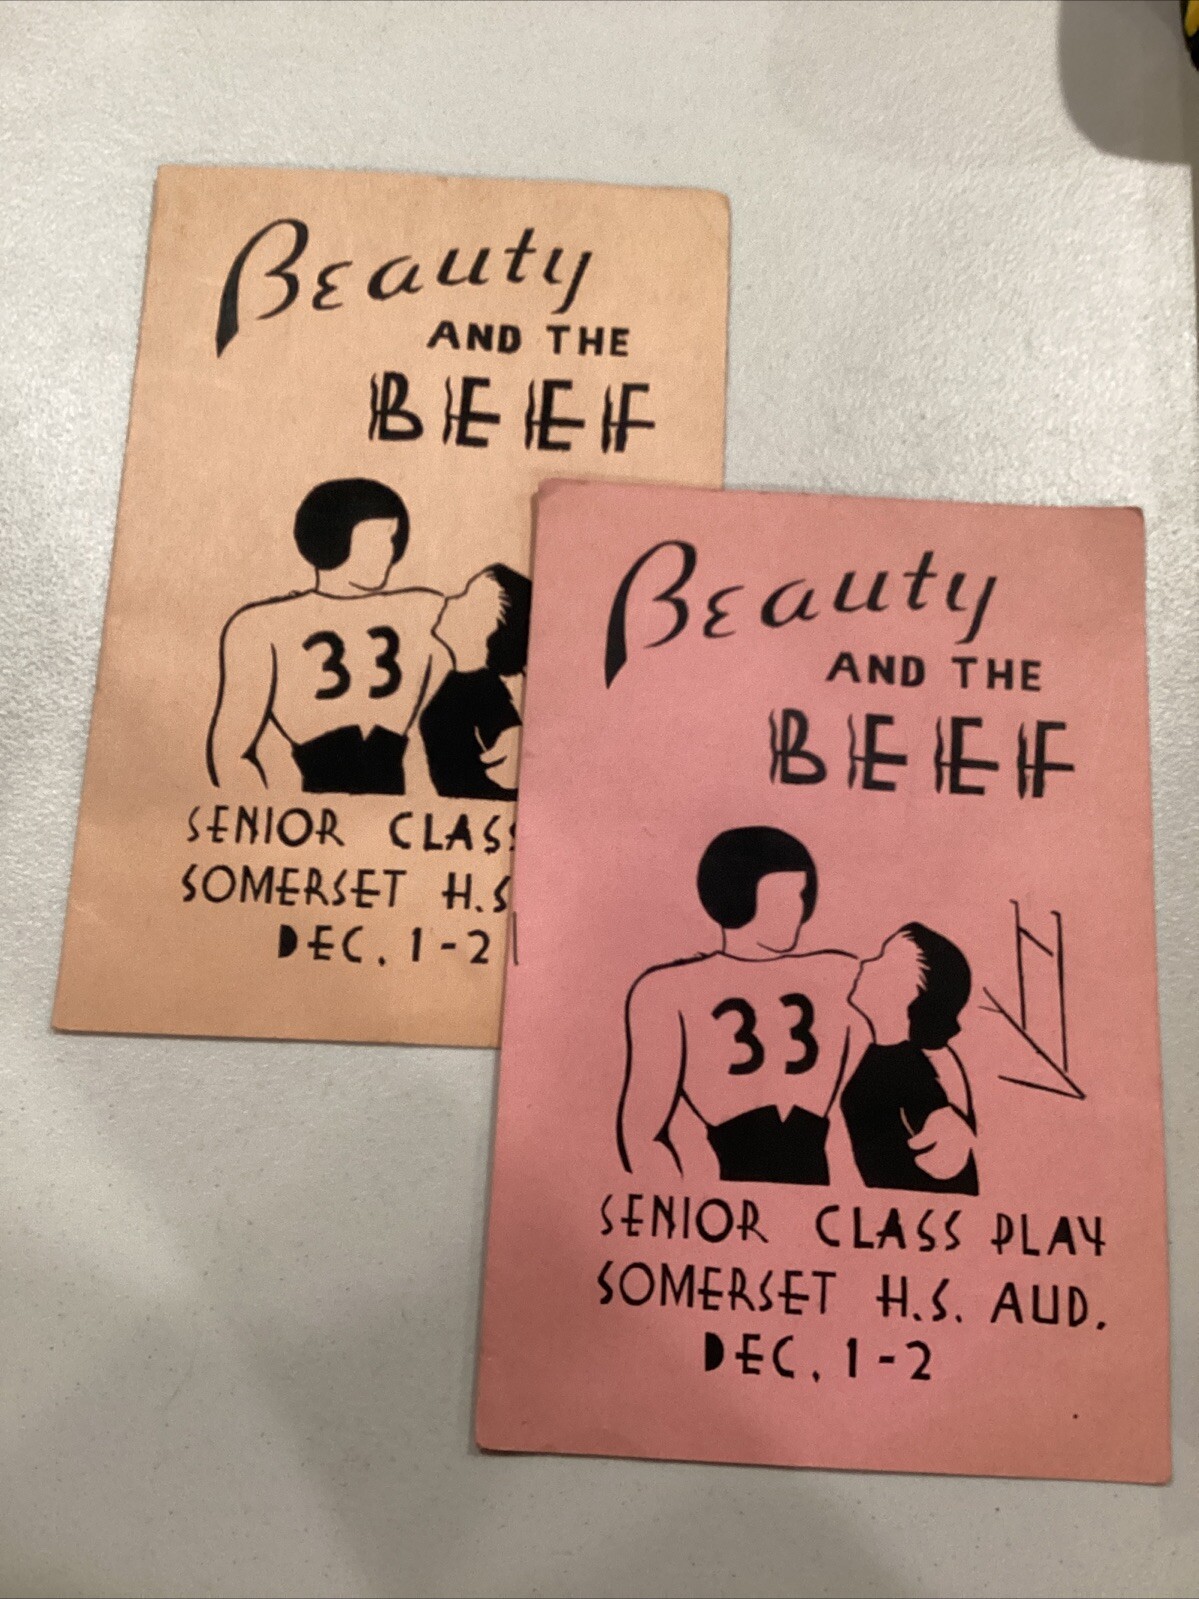 Beauty
AND THE
BEEF
33
SENIOR CLASS
SOMERSET H.S
DEC. 1-2
Beauty
AND THE
BEEF
33
SENIOR CLASS PLAY
SOMERSET H.S. AUD.
DEC. 1-2